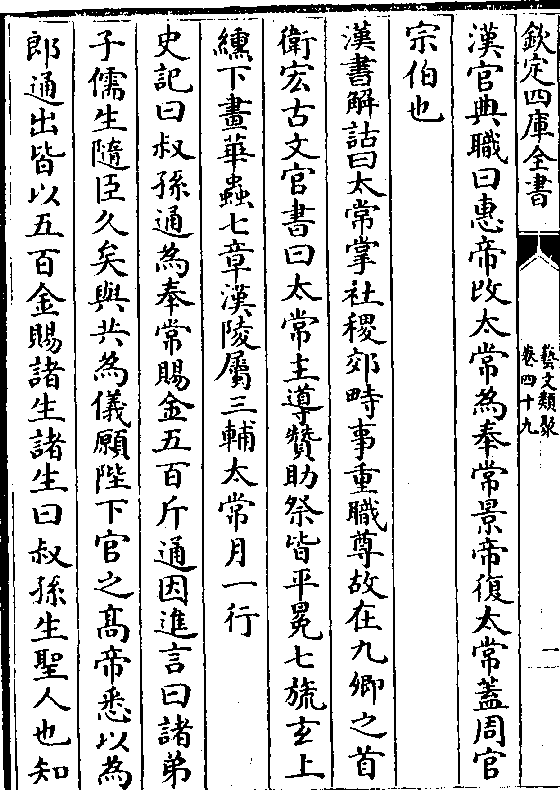 欽定四庫全書
藝文類聚
卷四十九
一
漢官典職曰惠帝改太常為奉常景帝復太常蓋周官
宗伯也
漢書解詁曰太常掌社稷郊畤事重職尊故在九卿之首
衛宏古文官書曰太常主導贊助祭皆平冕七旒玄上
纁下畫華蟲七章漢陵屬三輔太常月一行
史記曰叔孫通為奉常賜金五百斤通因進言曰諸弟
子儒生隨臣久矣與共為儀願陛下官之髙帝悉以為
郎通出皆以五百金賜諸生諸生曰叔孫生聖人也知